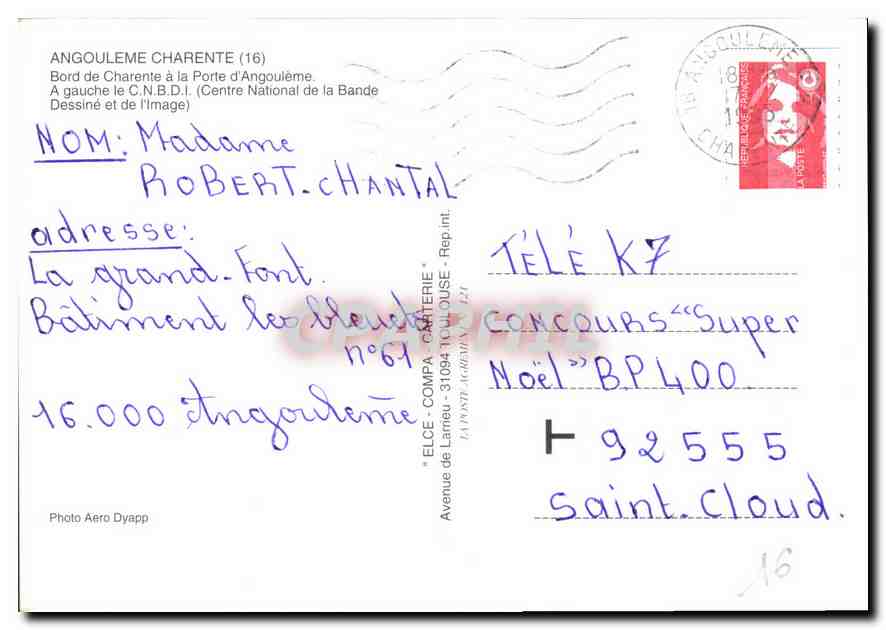 ANGOULEME CHARENTE (16)
Bord de Charente à la Porte d'Angoulème.
A gauche le C.N.B.D.I. (Centre National de la Bande
Dessiné et de l'Image)
NOM: Madame
ROBERT-CHANTAL
adresse:
La grand-Font.
Bâtiment les bleuets
n°61
16.000 Angoulême
Photo Aero Dyapp
" ELCE - COMPA - CARTERIE "
Avenue de Larrieu - 31094 TOULOUSE - Rep.int.
LA POSTE AGREMENT
CPARHIL
16 ANGOULEME
18
RÉPUBLIQUE FRANÇAISE
LA POSTE
TÉLÉ K7
CONCOURS "Super
Noël" B.P.400.
T 92555
Saint-Cloud.
16